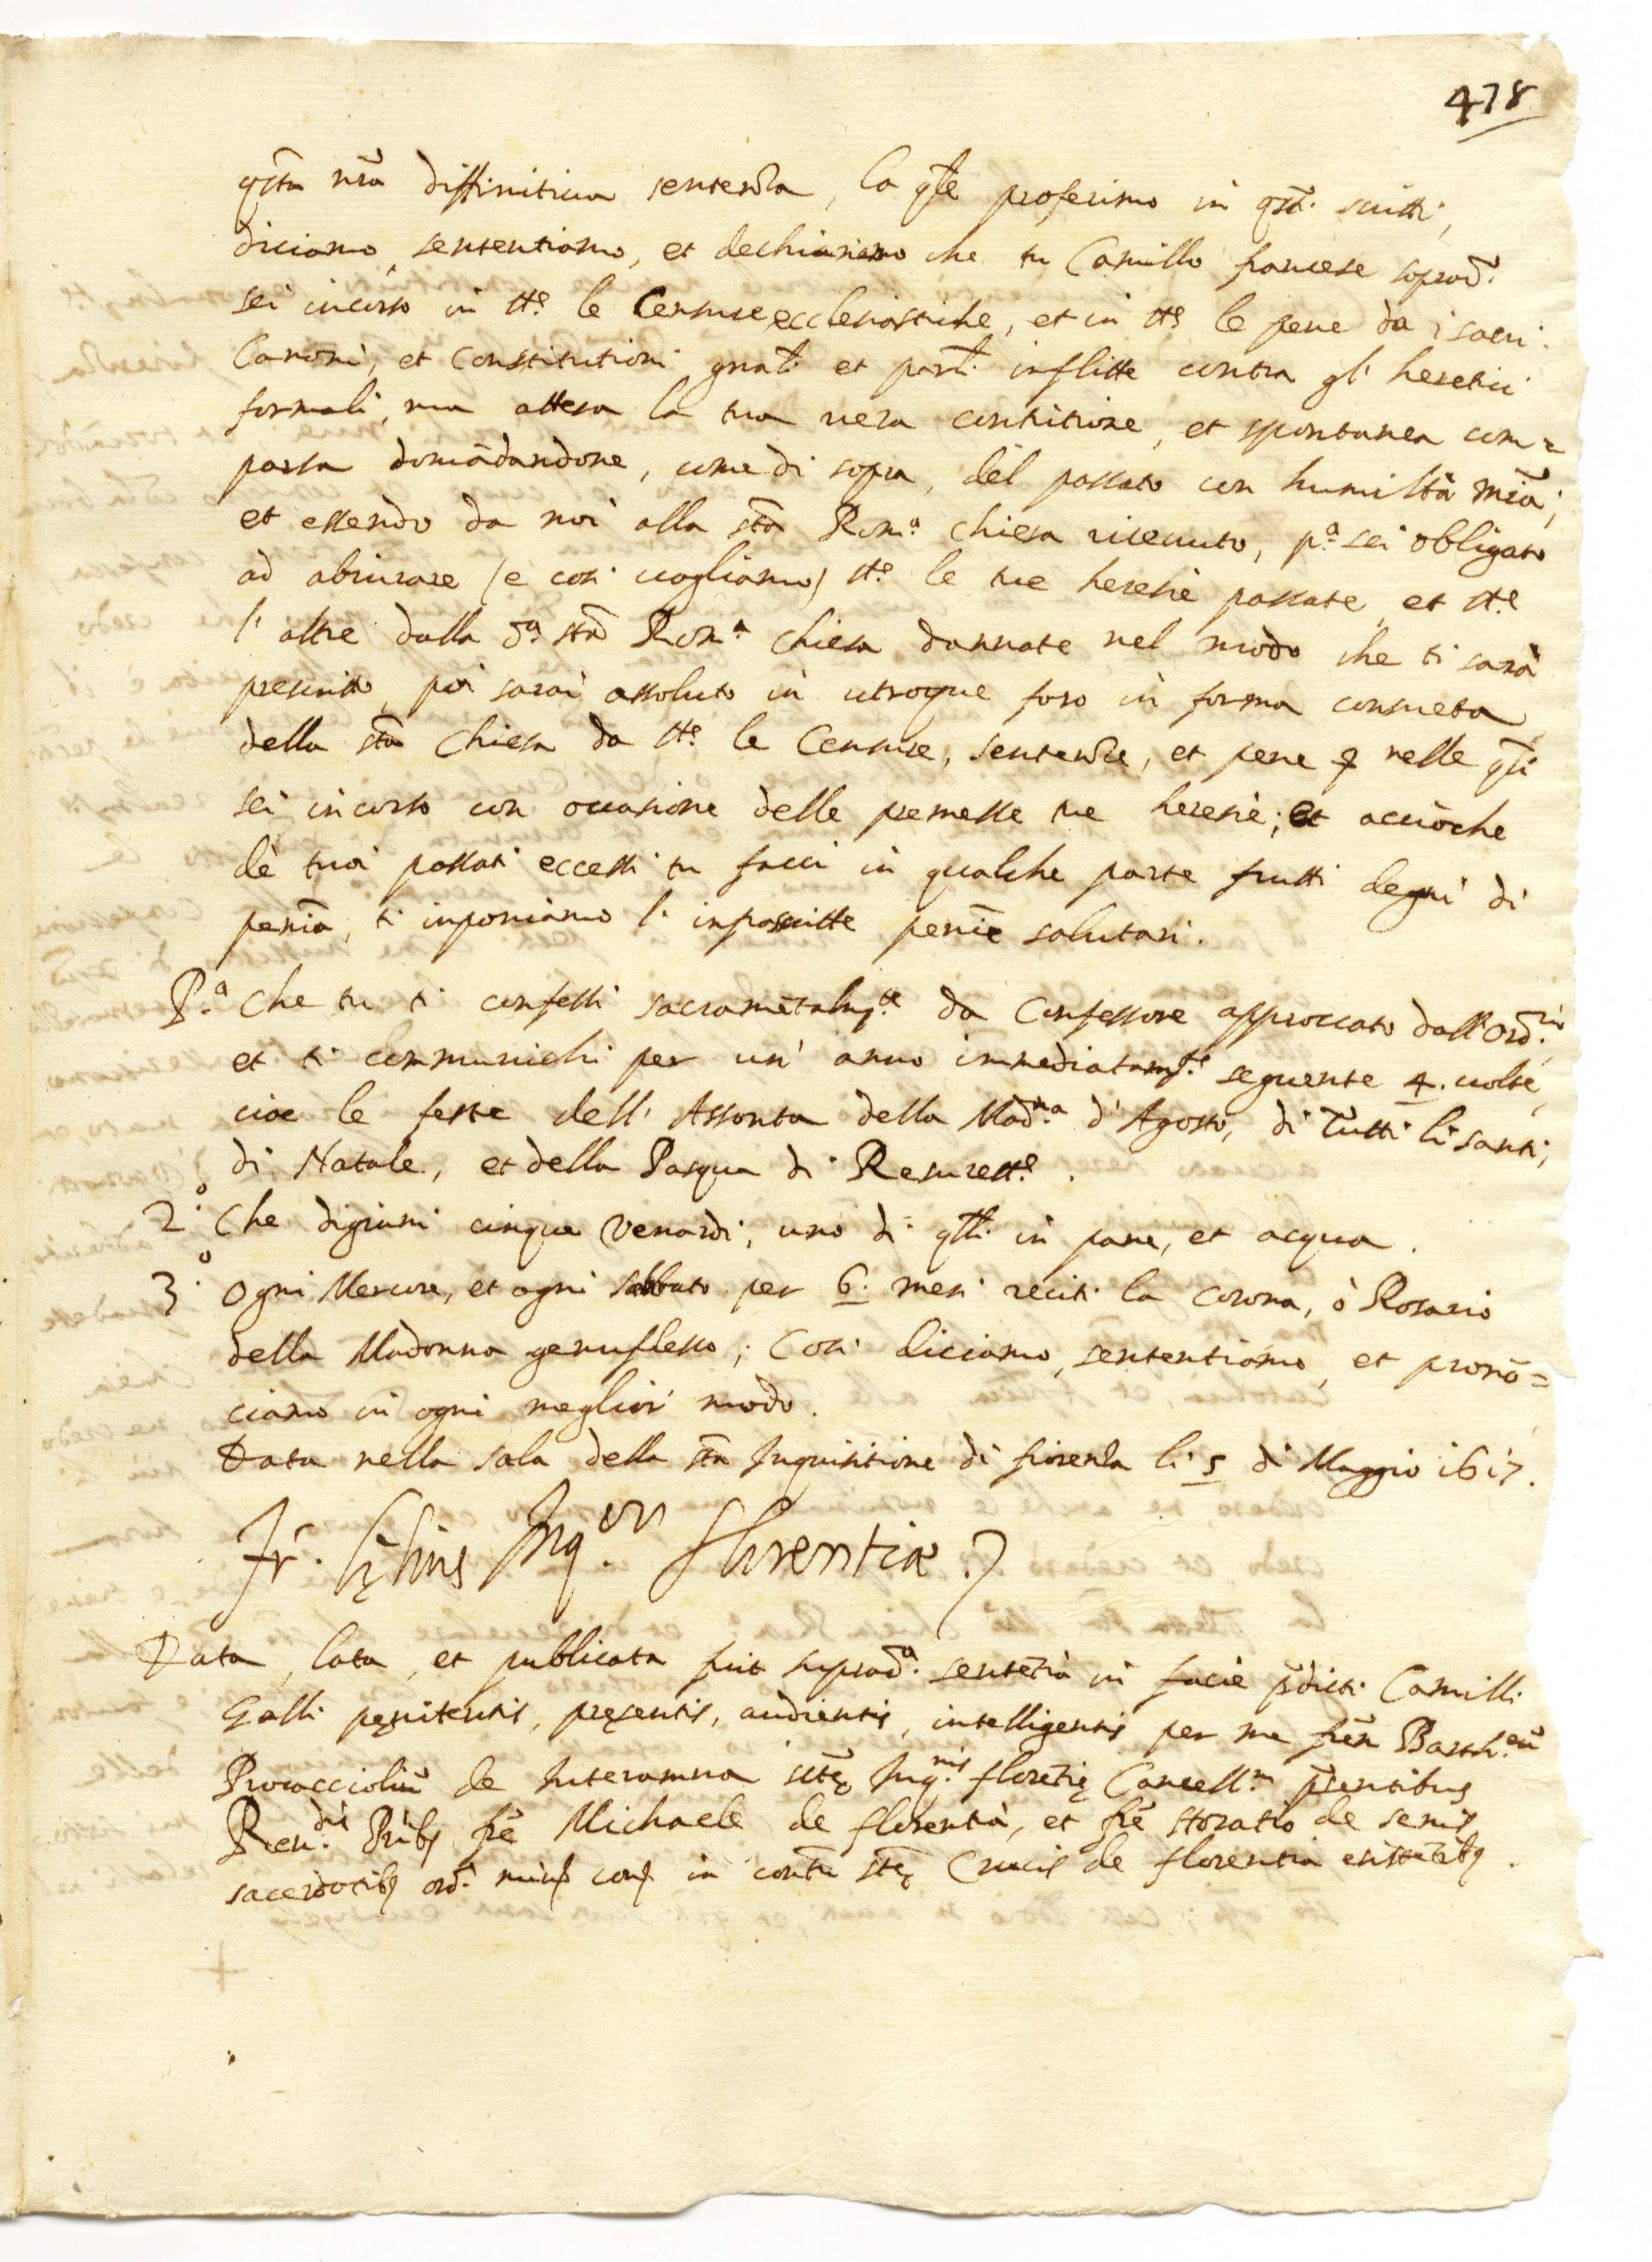 478
q̃sta nr̃a diffinitiua sentenza, la q̃le proferimo in q̃sti scritti,
diciamo, sententiamo, et dechiariamo che tu Camillo francese sopradº.
sei incorso in tt.e le Censure ecclesiastiche, et in tt.e le pene da i sacri
Canoni, et Constitutioni gnãli et parti. inflitte contra gl' heretici
formali, ma attesa la tua uera contritione, et spontanea com=
parsa domãdandone, come di sopra, del passato con humiltà mĩa;
et essendo da noi alla stã Rom.a Chiesa riceuuto, p.a sei obligato
ad abiurare (e così uogliamo) tt.e le tue heresie passate, et tt.e
l' altre dalla d.a stã Rom.a Chiesa dannate nel modo che ti sarà
prescritto, poi sarai assoluto in utroque foro in forma consueta
della stã Chiesa da tt.e le Censure, sentenze, et pene nelle q̃li
sei incorso con occasione delle premesse tue heresie; et acciòche
dè tuoi passati eccessi tu facci in qualche parte frutti degni di
penĩa, ti inponiamo l' infrascritte penĩe salutari.
P.a Che tu ti confessi sacramẽtalm.te da Confessore approuato dall' Ord.rio,
et ti communichi per un' anno immediatam.te seguente 4. uolte,
cioe le feste dell' Assonta della Mad.na d' Agosto, di Tutti li santi,
di Natale, et della Pasqua di Resurett.e.
2.o Che digiuni cinque Venardi, uno di q̃lli in pane, et acqua.
3.o Ogni Mercore, et ogni sabbato per 6. mesi reciti la corona, ò Rosario
della Madonna genuflesso; Così diciamo, sententiamo, et pronõ=
ciamo in ogni meglior modo.
Data nella sala della stã Inquisitione di fiorenza li 5 di Maggio 1617.
Fr. Lęlius Inq.or Florentiæ.
Data, lata, et publicata fuit suprad.a sentẽtia in facie p̃dicti Camilli
Galli pęnitentis, pręsentis, audientis, intelligentis per me frẽm Barth.eũ
Procacciolũ de Interamna stę Inq.nis florẽtię Cancell.m p̃sentibus
Reu.dis Pribꝫ frẽ Michaele de florentia, et frẽ Horatio de senis
sacerdotibꝫ ord. min. conu. in contũ stę Crucis de florentia existẽtibꝫ.